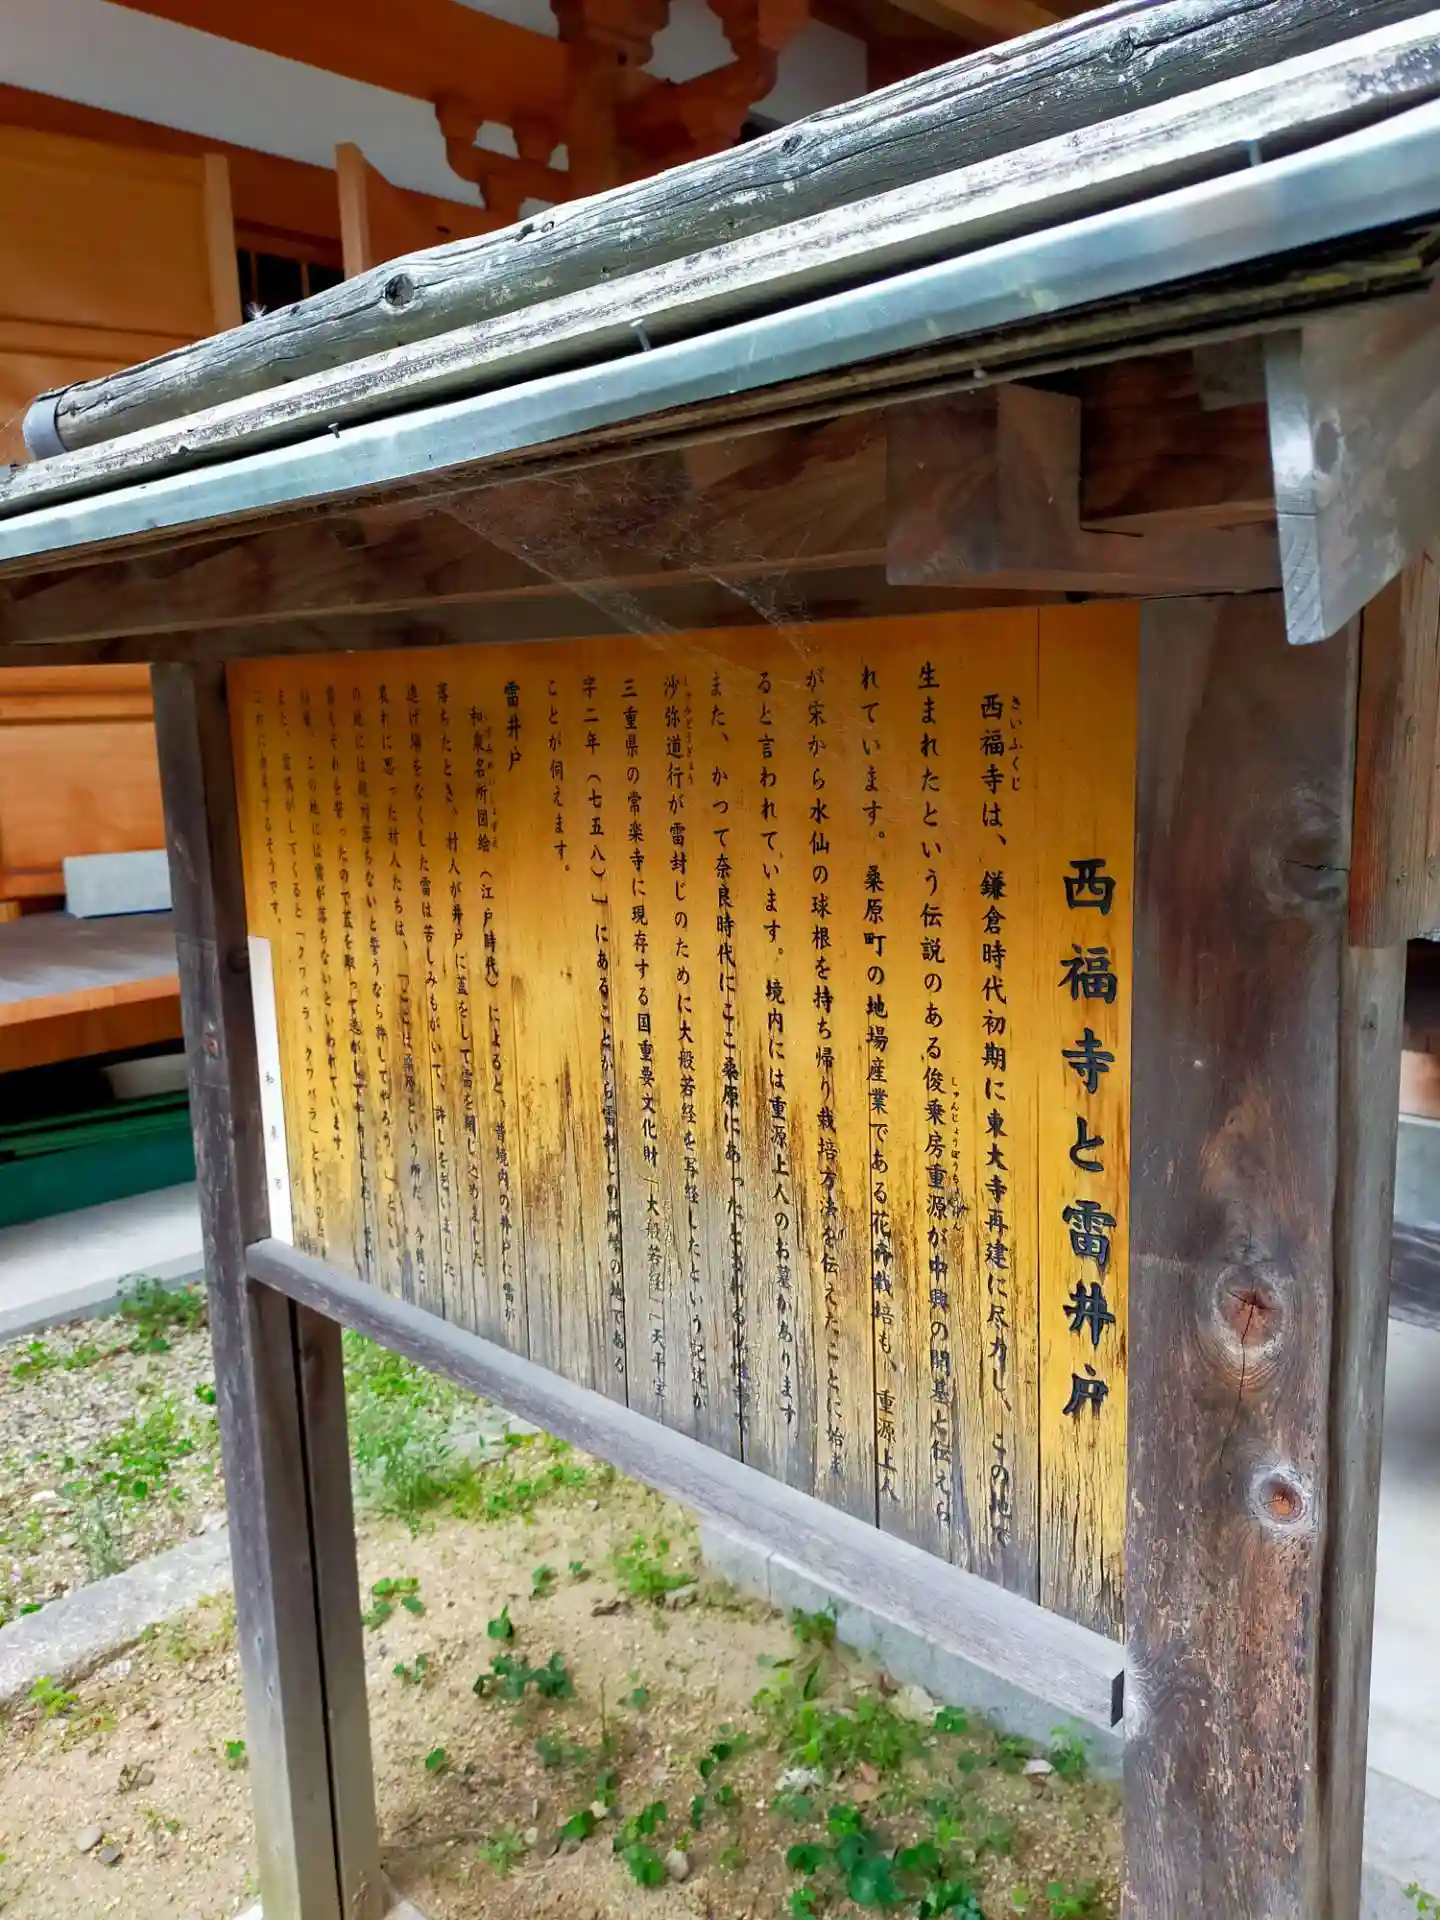 西福寺と雷井戸
西福寺は、鎌倉時代初期に東大寺再建に尽力し、この地で
さいふくじ
生まれたという伝説のある俊乗房重源が中興の開基と伝えら
しゅんじょうぼうちょうげん
れています。桑原町の地場産業である花卉栽培も、重源上人
が宋から水仙の球根を持ち帰り栽培方法を伝えたことに始ま
ると言われています。境内には重源上人のお墓があります。
また、かつて奈良時代にここ桑原にあったとされる
沙弥道行が雷封じのために大般若経を写経したという記述が
しゃみどうぎょう
三重県の常楽寺に現存する国重要文化財「大般若経」「天平宝
字二年（七五八）」にあることから雷封じの所縁の地である
ことが伺えます。
雷井戸
和泉名所図絵（江戸時代）によると、昔境内の井戸に雷が
いずみめいしょずえ
落ちたとき、村人が井戸に蓋をして雷を閉じこめました。
逃げ場をなくした雷は苦しみもがいて、許しをこいました。
哀れに思った村人たちは、「ここは桑原という所だ。今後こ
の地には絶対落ちないと誓うなら許してやろう。」とい
雷もそれを誓ったので蓋を取って逃がしてやりました。
以後、この地には雷が落ちないといわれています。
また、雷鳴がしてくると「クワバラ、クワバラ」という
これに由来するそうです。
和泉市